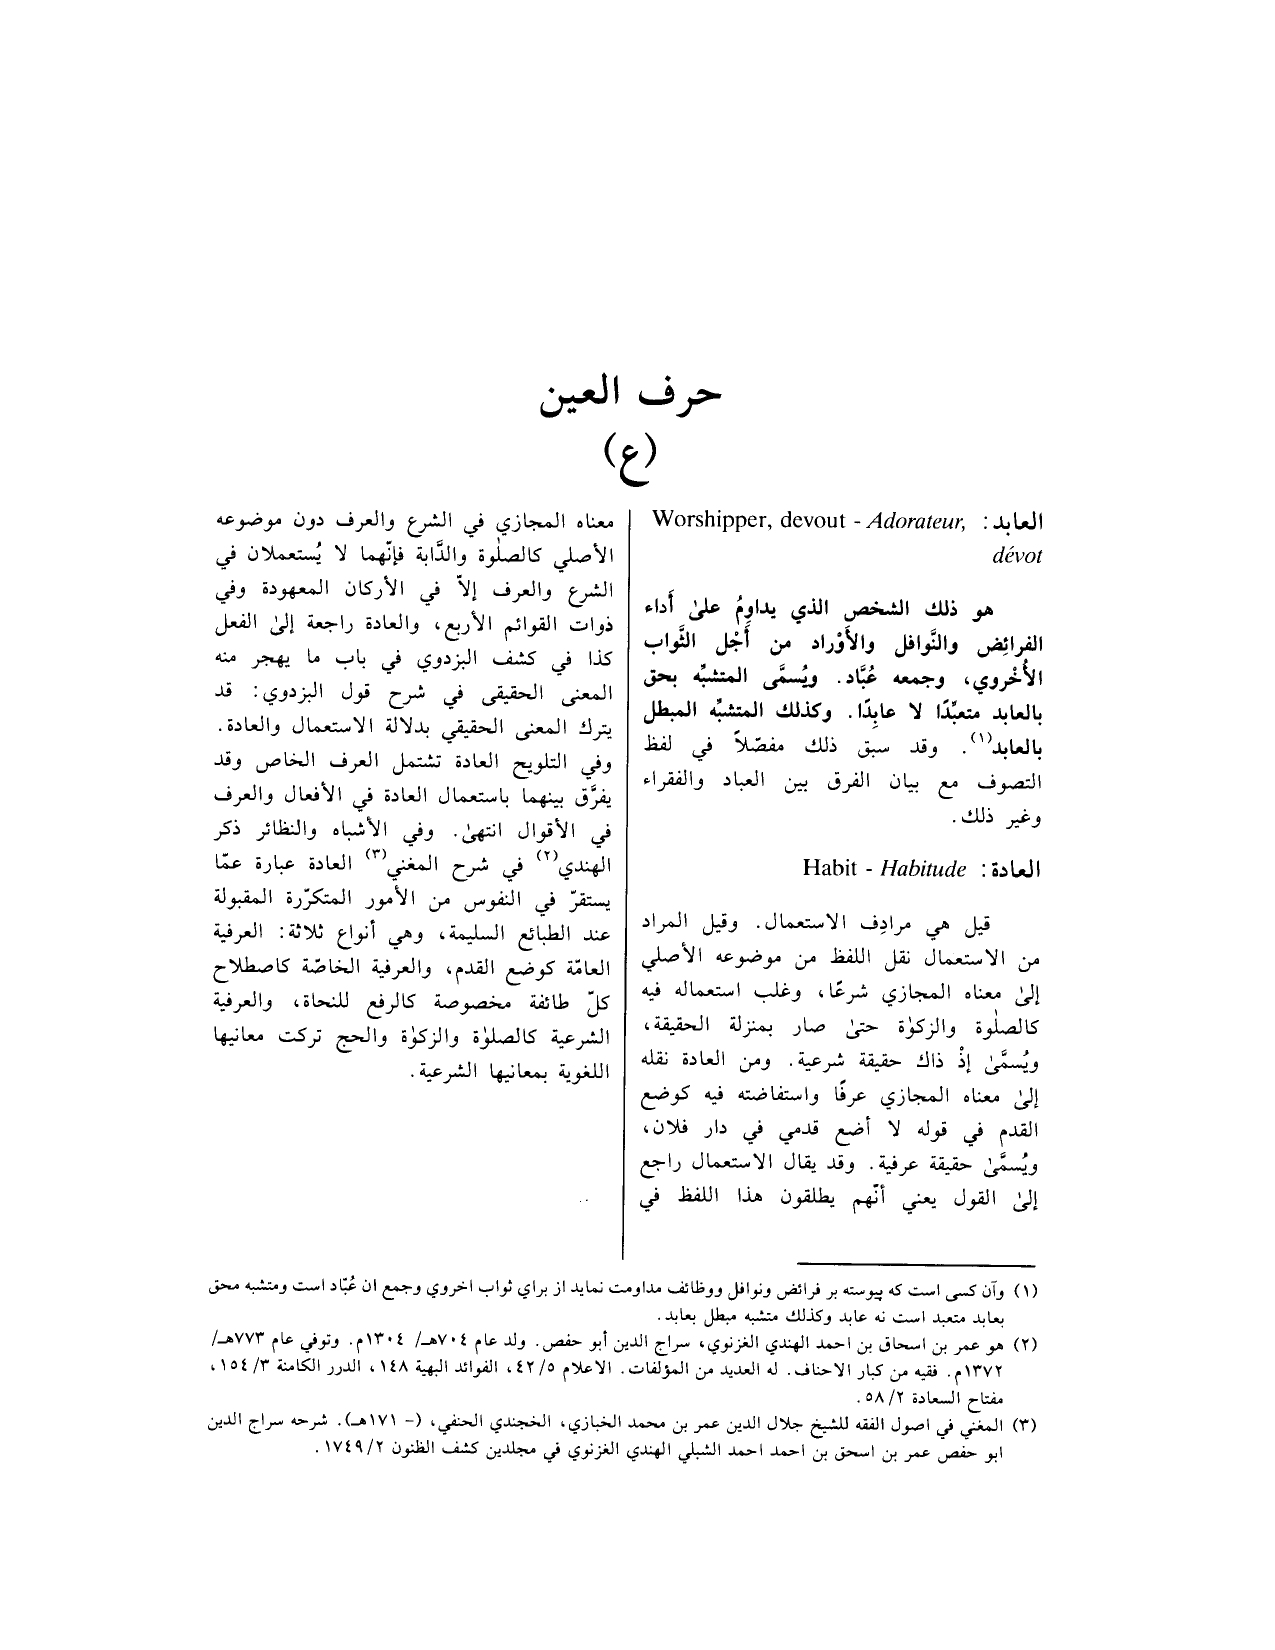 حرف العين
(ع)
العابد: Worshipper, devout - Adorateur,
dévot
هو ذلك الشخص الذي يداوِمُ علىٰ أَداء
الفرائِض والنَّوافل والأَوْراد من أَجْل الثَّواب
الأُخْروي، وجمعه عُبَّاد. ويُسمَّى المتشبِّه بحق
بالعابد متعبِّدًا لا عابِدًا. وكذلك المتشبِّه المبطل
بالعابد(١). وقد سبق ذلك مفصّلاً في لفظ
التصوف مع بيان الفرق بين العباد والفقراء
وغير ذلك.
العادة: Habit - Habitude
قيل هي مرادِف الاستعمال. وقيل المراد
من الاستعمال نقل اللفظ من موضوعه الأصلي
إلىٰ معناه المجازي شرعًا، وغلب استعماله فيه
كالصلٰوة والزكوٰة حتىٰ صار بمنزلة الحقيقة،
ويُسمَّىٰ إذْ ذاك حقيقة شرعية. ومن العادة نقله
إلىٰ معناه المجازي عرفًا واستفاضته فيه كوضع
القدم في قوله لا أضع قدمي في دار فلان،
ويُسمَّىٰ حقيقة عرفية. وقد يقال الاستعمال راجع
إلىٰ القول يعني أنّهم يطلقون هذا اللفظ في
معناه المجازي في الشرع والعرف دون موضوعه
الأصلي كالصلٰوة والدَّابة فإنّهما لا يُستعملان في
الشرع والعرف إلاّ في الأركان المعهودة وفي
ذوات القوائم الأربع، والعادة راجعة إلىٰ الفعل
كذا في كشف البزدوي في باب ما يهجر منه
المعنى الحقيقى في شرح قول البزدوي: قد
يترك المعنى الحقيقي بدلالة الاستعمال والعادة.
وفي التلويح العادة تشتمل العرف الخاص وقد
يفرَّق بينهما باستعمال العادة في الأفعال والعرف
في الأقوال انتهىٰ. وفي الأشباه والنظائر ذكر
الهندي(٢) في شرح المغني(٣) العادة عبارة عمّا
يستقرّ في النفوس من الأمور المتكرّرة المقبولة
عند الطبائع السليمة، وهي أنواع ثلاثة: العرفية
العامّة كوضع القدم، والعرفية الخاصّة كاصطلاح
كلّ طائفة مخصوصة كالرفع للنحاة، والعرفية
الشرعية كالصلوٰة والزكوٰة والحج تركت معانيها
اللغوية بمعانيها الشرعية.
(١) وآن كسى است كه پيوسته بر فرائض ونوافل ووظائف مداومت نمايد از براي ثواب اخروي وجمع ان عُبّاد است ومتشبه محق
بعابد متعبد است نه عابد وكذلك متشبه مبطل بعابد.
(٢) هو عمر بن اسحاق بن احمد الهندي الغزنوي، سراج الدين أبو حفص. ولد عام ٧٠٤هـ/ ١٣٠٤م. وتوفي عام ٧٧٣هـ/
١٣٧٢م. فقيه من كبار الاحناف. له العديد من المؤلفات. الاعلام ٤٢/٥، الفوائد البهية ١٤٨، الدرر الكامنة ٣/ ١٥٤،
مفتاح السعادة ٢/ ٥٨.
(٣) المغني في اصول الفقه للشيخ جلال الدين عمر بن محمد الخبازي، الخجندي الحنفي، (- ١٧١هـ). شرحه سراج الدين
ابو حفص عمر بن اسحق بن احمد احمد الشبلي الهندي الغزنوي في مجلدين كشف الظنون ٢/ ١٧٤٩.